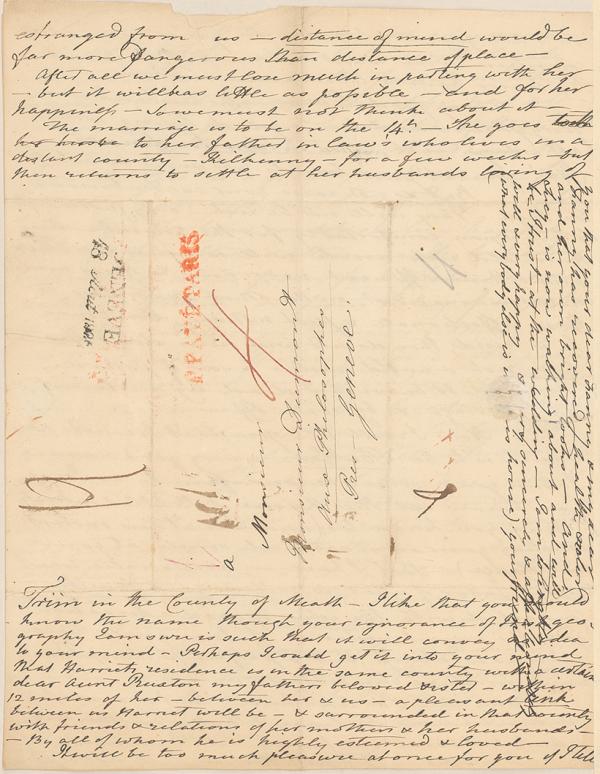 estranged from us — distance of mind would be
far more dangerous than distance of place —
After all we must lose much in parting with her
— but it will be as little as possible — and for her
happiness — so we must not think about it —
The marriage is to be on the 14th — She goes
to her father in law's who lives in a
distant county — Kilkenny — for a few weeks — but
then returns to settle at her husbands living of
Trim in the County of Meath — I like that you should
know the name though your ignorance of
geography I am sure is such that it will convey idea
to your mind — Perhaps I could get it into your mind
that Harriets residence is in the same county with a certain
dear Aunt Ruxton my fathers beloved sister — within
12 miles of her — between her & us — a pleasant link
between us Harriet will be — & surrounded in that county
with friends & relations of her mothers & her husbands —
— By all of whom he is highly esteemed & loved —
It will be too much pleasure at once for you if I tell
you that your dear Fanny & my dear
Fanny has recovered health
and her own bright looks — and
is now walking about and will
be I trust at the wedding — I am
will & very happy
what every body else is in house) your
a Monsieur
Monsieur Dumont
Aux Philosophes
Pres — Geneve.
GENEVE
P.PAYÉ PARIS
4
12